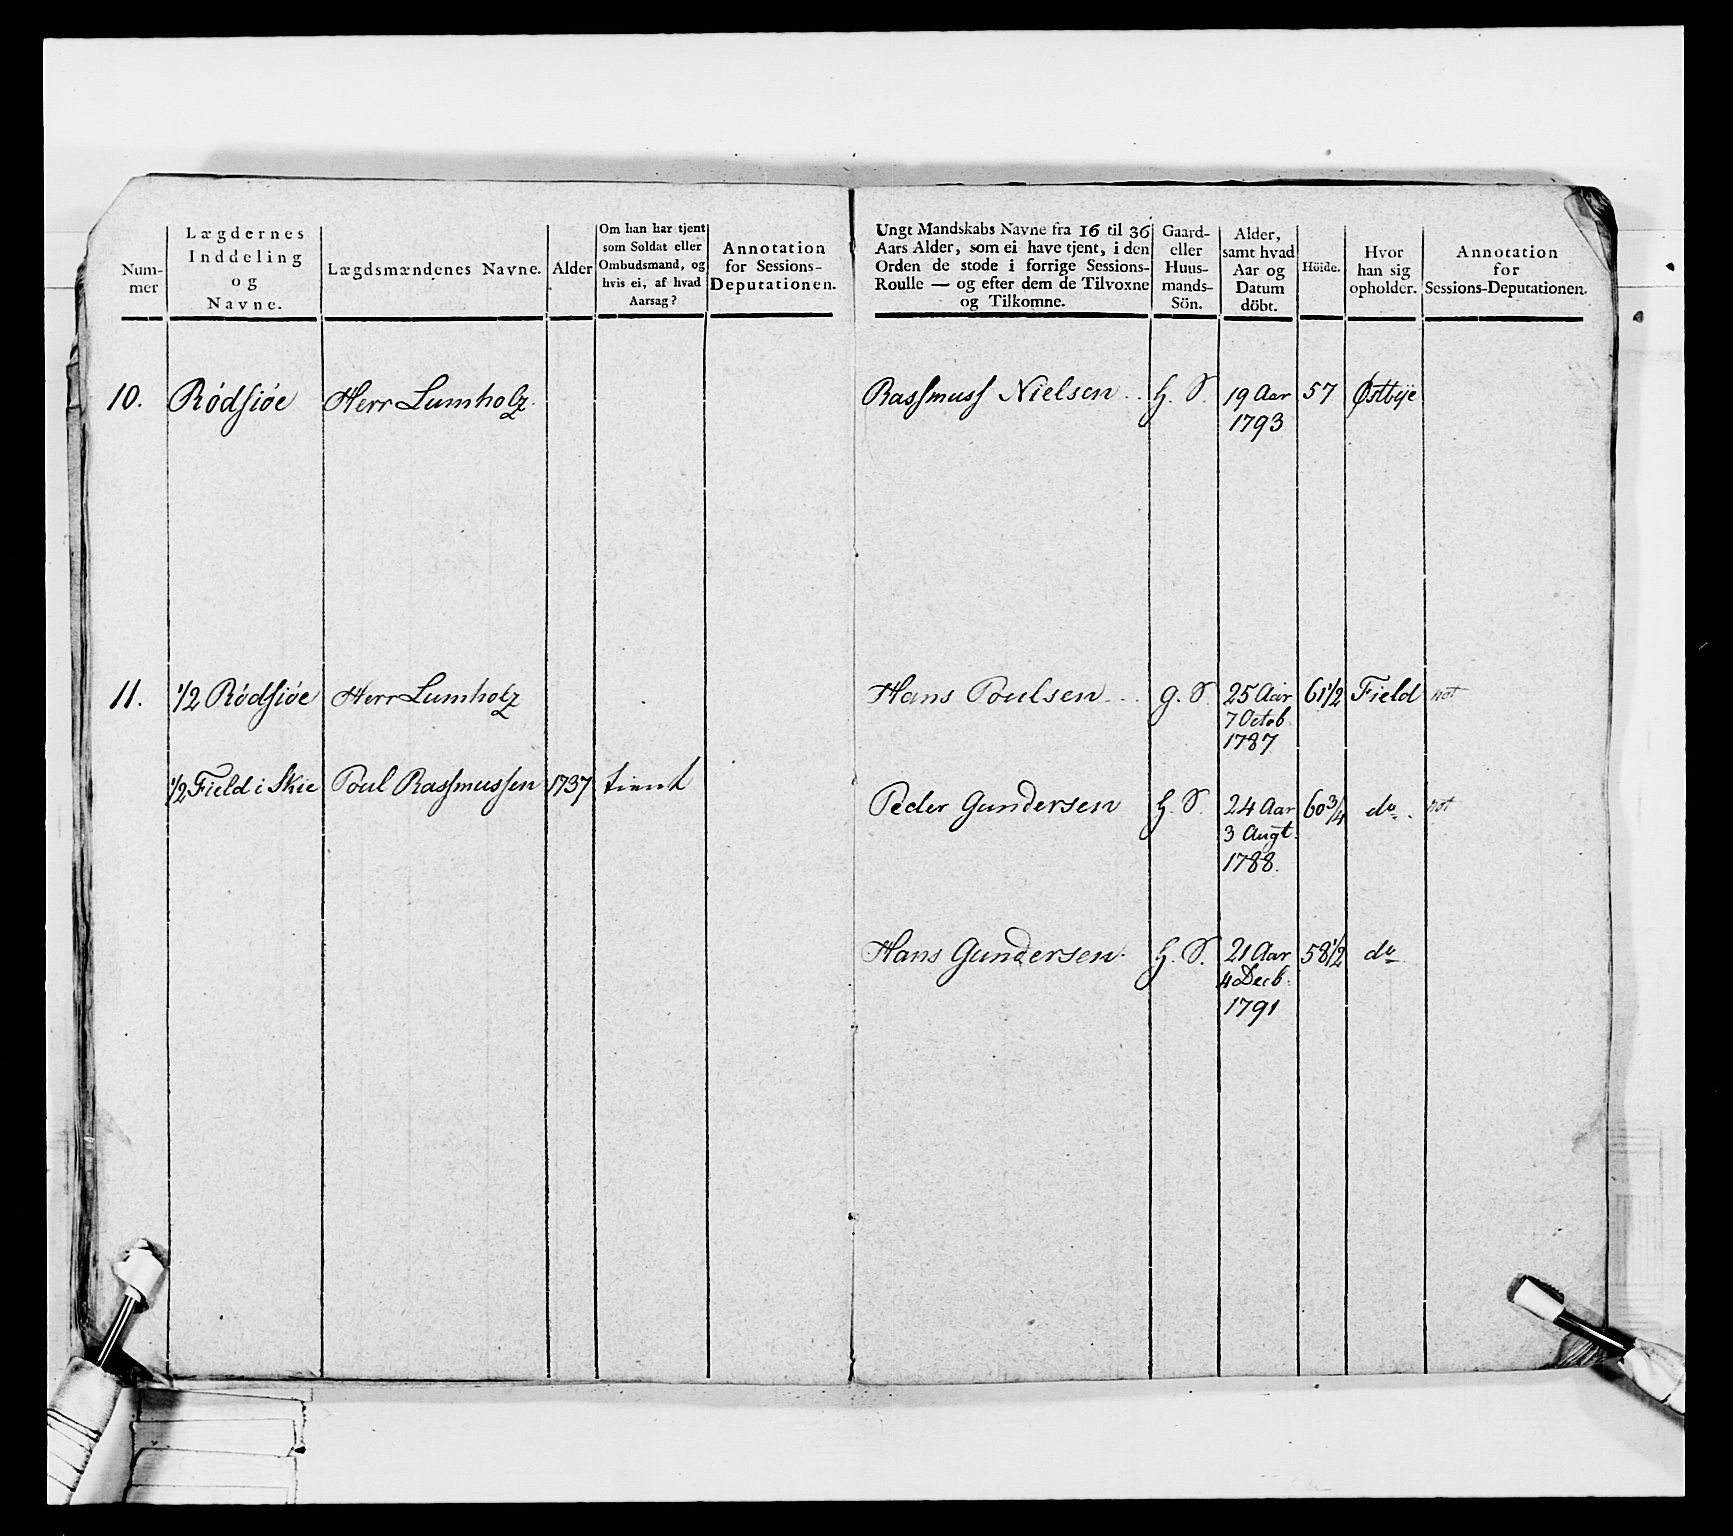 Num-
mer
Lægdernes
Inddeling
og
Navne.
Lægdsmændenes Navne.
Alder
Om han har tjent
som Soldat eller
Ombudsmand, og
hvis ei, af hvad
Aarsag?
Annotation
for Sessions-
Deputationen.
Ungt Mandskabs Navne fra 16 til 36
Aars Alder, som ei have tjent, i den
Orden de stode i forrige Sessions-
Roulle — og efter dem de Tilvoxne
og Tilkomne.
Gaard-
eller
Huus-
mands-
Sön.
Alder,
samt hvad
Aar og
Datum
döbt.
Höide.
Hvor
han sig
opholder.
Annotation
for
Sessions-Deputationen.
10. Rödsiöe Herr Lumholz. Rasmus Nielsen .. H. S. 19 Aar 57 Østbye
1793
11. 1/2 Rödsiöe Herr Lumholz Hans Poulsen .. g. S. 25 Aar 61 1/2 Field not
7 Octob.
1787
1/2 Field i Skie Poul Rasmussen 1737 tient
Peder Gundersen H. S. 24 Aar 60 3/4 do. not
3 Augt.
1788.
Hans Gundersen. H. S. 21 Aar 58 1/2 do
4 Decb.
1791